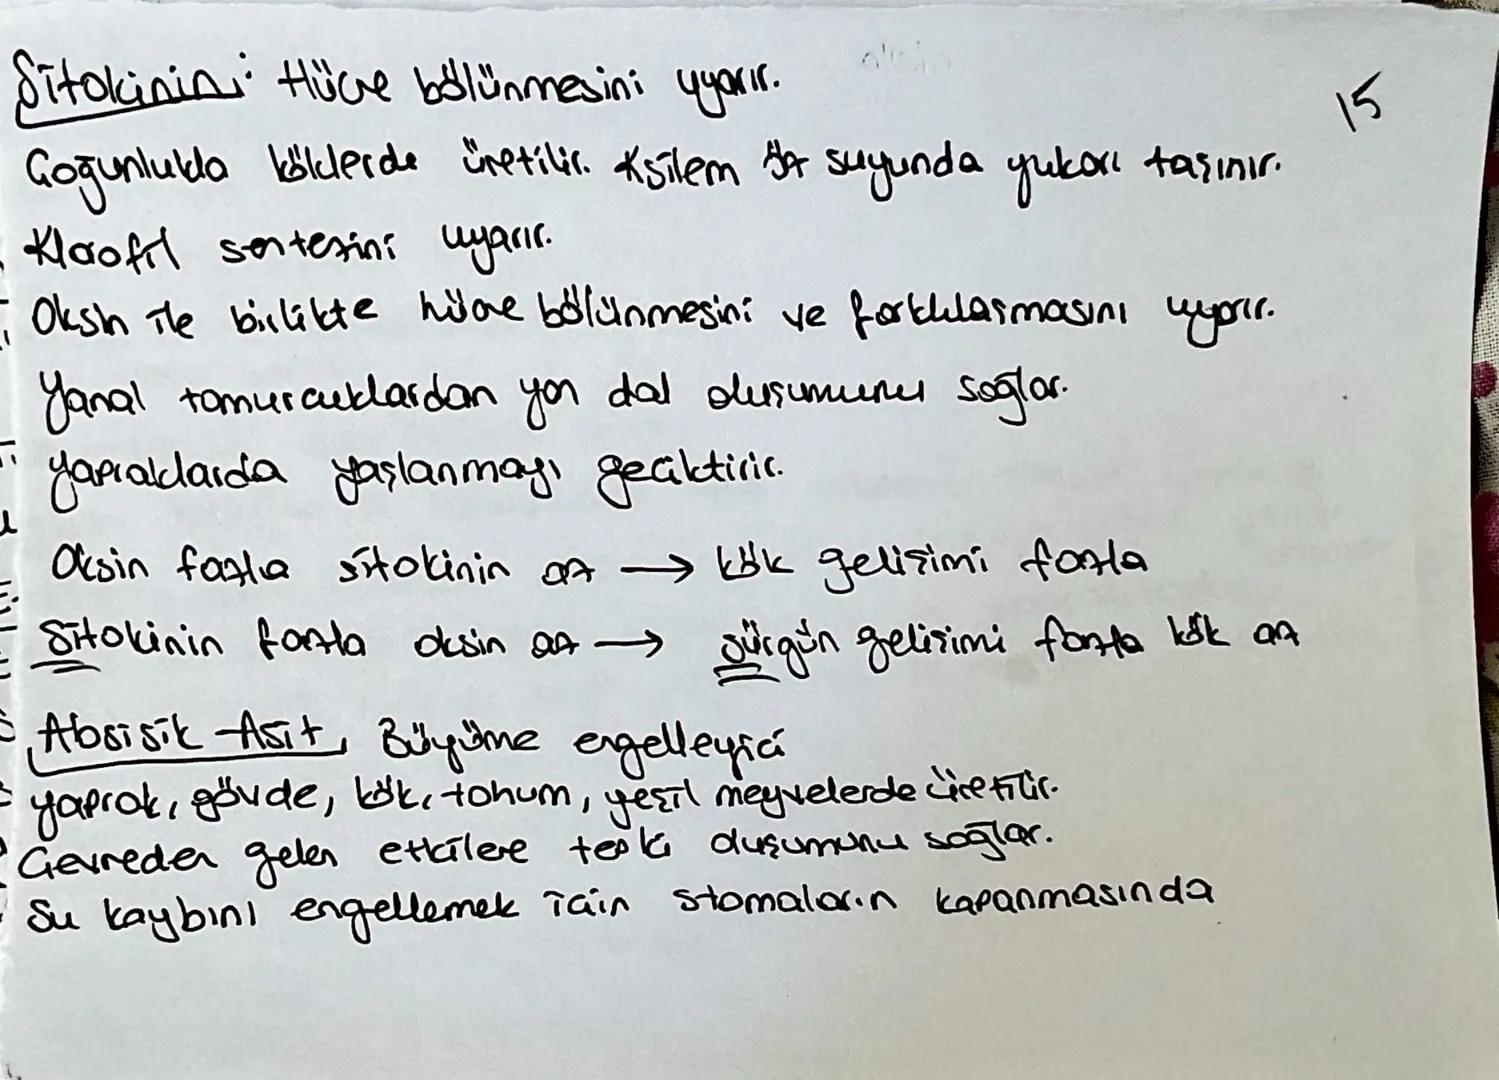 15
Sitokinin: Hücre bölünmesini uyarır.
Çoğunlukla köklerde üretilir. Ksilem öz suyunda yukarı taşınır.
Klorofil sentezini uyarır.
Oksin ile birlikte hücre bölünmesini ve farklılaşmasını uyarır.
Yanal tomurcuklardan yan dal oluşumunu sağlar.
Yapraklarda yaşlanmayı geciktirir.
Oksin fazla sitokinin az → kök gelişimi fazla
Sitokinin fazla oksin az → sürgün gelişimi fazla kök az
Absisik Asit, Büyüme engelleyici
yaprak, gövde, kök, tohum, yeşil meyvelerde üretilir.
Çevreden gelen etkilere tepki oluşumunu sağlar.
Su kaybını engellemek için stomaların kapanmasında